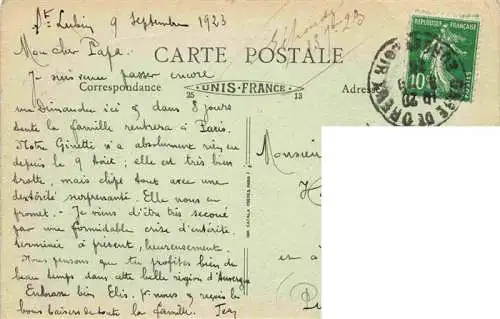 St Lubin 9 Septembre 1923
Mon cher Papa.
CARTE POSTALE
Je suis venu passer encore
Correspondance
UNIS-FRANCE
Adresse
25
13
un Dimanche ici & dans 8 jours
toute la famille rentrera à Paris.
Notre Ginette n'a absolument rien eu
depuis le 9 Août; elle est très bien
trotte, mais chipe tout avec une
dextérité surprenante. Elle nous en
promet. - Je viens d'être très secoué
par une formidable crise d'entérite.
terminée à présent, heureusement.
Nous pensons que tu profites bien de
beau temps dans cette belle région d'Auvergne
Embrasse bien Elis. pr nous & reçois les
bons baisers de toute la famille.
Monsieur
REPUBLIQUE FRANÇAISE
10
POSTES